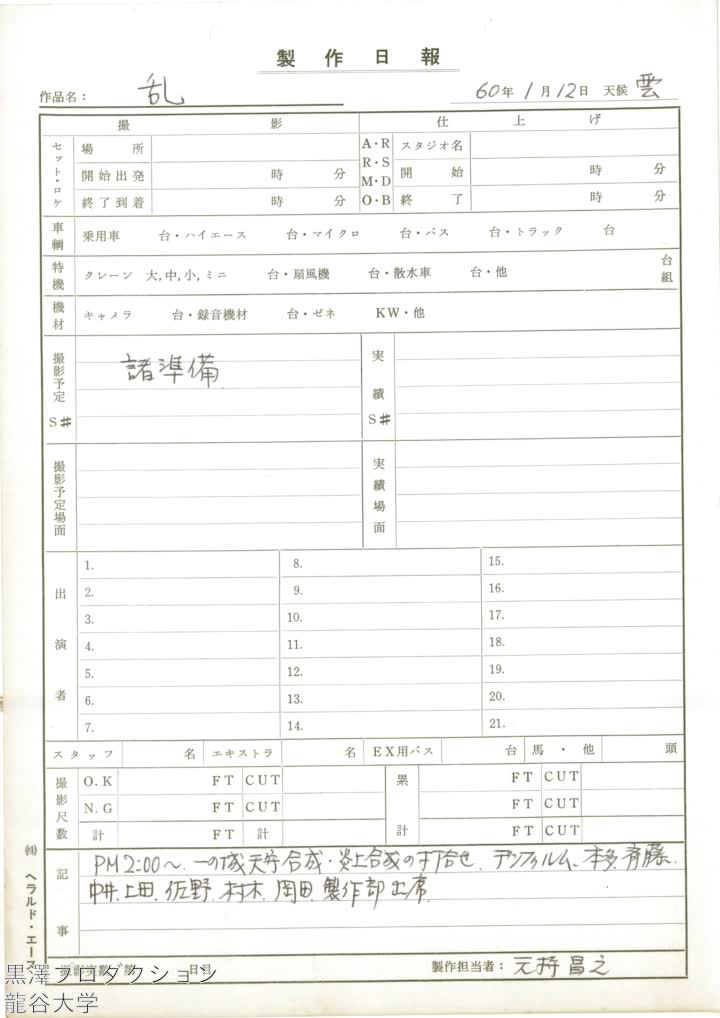 製作日報
作品名： 乱 60年1月12日 天候 雲
撮影 仕上げ
セット・ロケ 場所 A・R スタジオ名
開始出発 時 分 R・S 開始 時 分
M・D
終了到着 時 分 O・B 終了 時 分
車輌 乗用車 台・ハイエース 台・マイクロ 台・バス 台・トラック 台
特機 クレーン 大,中,小,ミニ 台・扇風機 台・散水車 台・他 台組
機材 キャメラ 台・録音機材 台・ゼネ KW・他
撮影予定S# 諸準備 実績S#
撮影予定場面 実績場面
出演者
1. 8. 15.
2. 9. 16.
3. 10. 17.
4. 11. 18.
5. 12. 19.
6. 13. 20.
7. 14. 21.
スタッフ 名 エキストラ 名 EX用バス 台 馬・他 頭
撮影尺数 O.K FT CUT 累計 FT CUT
N.G FT CUT FT CUT
計 FT 計 FT CUT
記事 PM2:00〜 一の城天守合成・炎上合成の打合せ、デンフィルム、本多、斉藤、
中井、上田、佐野、村木、岡田、製作部出席
㈱ヘラルド・エース
撮影実数 第 日目 製作担当者：元持昌之
黒澤プロダクション
龍谷大学